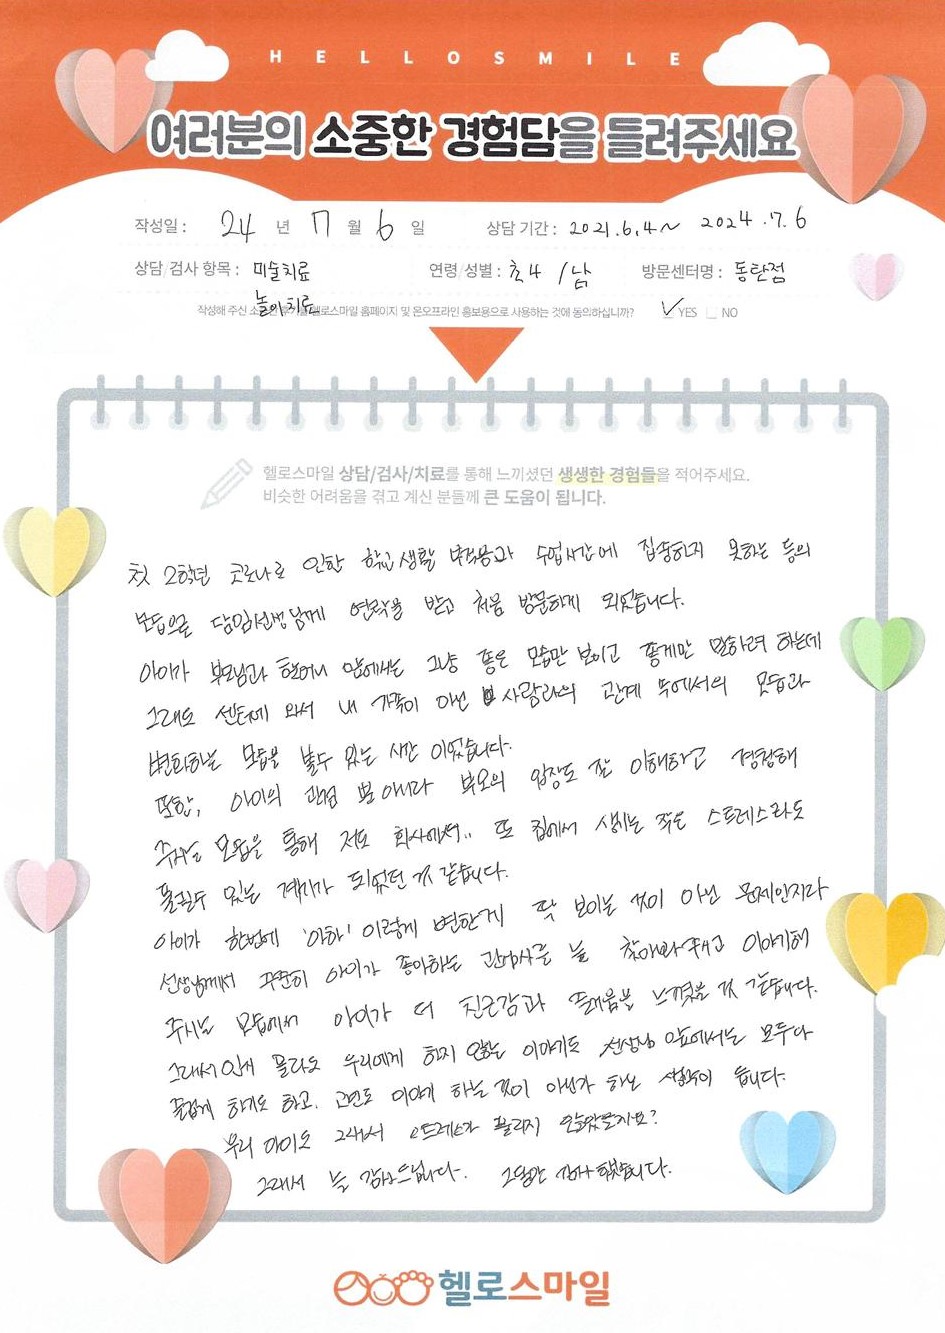 HELLOSMILE
여러분의 소중한 경험담을 들려주세요
작성일 : 24 년 7 월 6 일 상담 기간 : 2021.6.4~ 2024.7.6
상담/검사 항목 : 미술치료 연령/성별 : 초4 /남 방문센터명 : 동탄점
놀이치료
작성해 주신 소중한 후기를 헬로스마일 홈페이지 및 온오프라인 홍보용으로 사용하는 것에 동의하십니까? ✓YES NO
헬로스마일 상담/검사/치료를 통해 느끼셨던 생생한 경험들을 적어주세요.
비슷한 어려움을 겪고 계신 분들께 큰 도움이 됩니다.
첫 2학년 코로나로 인한 학교생활 부적응과 수업시간에 집중하지 못하는 등의
모습으로 담임선생님께 연락을 받고 처음 방문하게 되었습니다.
아이가 부모님과 할머니 앞에서는 그냥 좋은 모습만 보이고 좋게만 말하려 하는데
그래도 센터에 와서 내 가족이 아닌 사람과의 관계 속에서의 모습과
변화하는 모습을 볼수 있는 시간 이었습니다.
또한, 아이의 관점 뿐 아니라 부모의 입장도 잘 이해하고 경청해
주시는 모습을 통해 저도 회사에서.. 또 집에서 생기는 작은 스트레스라도
풀릴수 있는 계기가 되었던 것 같습니다.
아이가 한번에 '아하' 이렇게 변한게 딱 보이는 것이 아닌 문제인지라
선생님께서 꾸준히 아이가 좋아하는 관심사를 늘 찾아봐주시고 이야기해
주시는 모습에서 아이가 더 친근감과 즐거움을 느꼈을 것 같습니다.
그래서인지 몰라도 우리에게 하지 않는 이야기도 선생님 앞에서는 모두다
즐겁게 하기도 하고. 고민도 이야기 하는 것이 아닌가 하는 생각이 듭니다.
우리 아이도 그래서 스트레스가 풀리지 않았을지요?
그래서 늘 감사드립니다. 그동안 감사했습니다.
헬로스마일